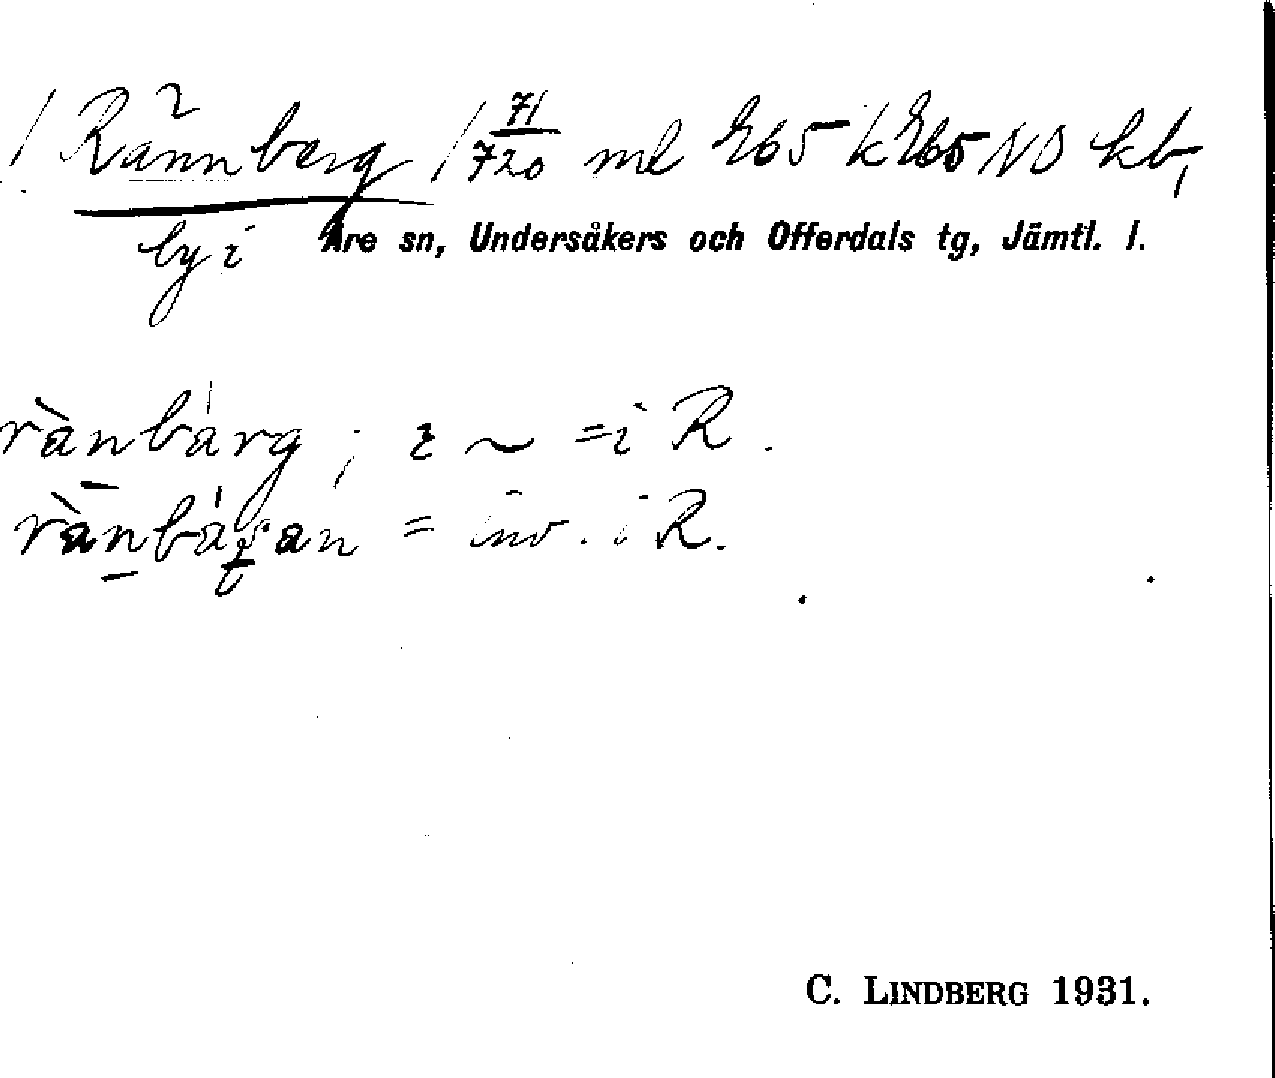 / Rännberg / 71/720 ml 265 k 265 NO kb,
by i Åre sn, Undersåkers och Offerdals tg, Jämtl. l.
rànbárg ; i ~ = i R.
= inv. i R.
C. LINDBERG 1931.